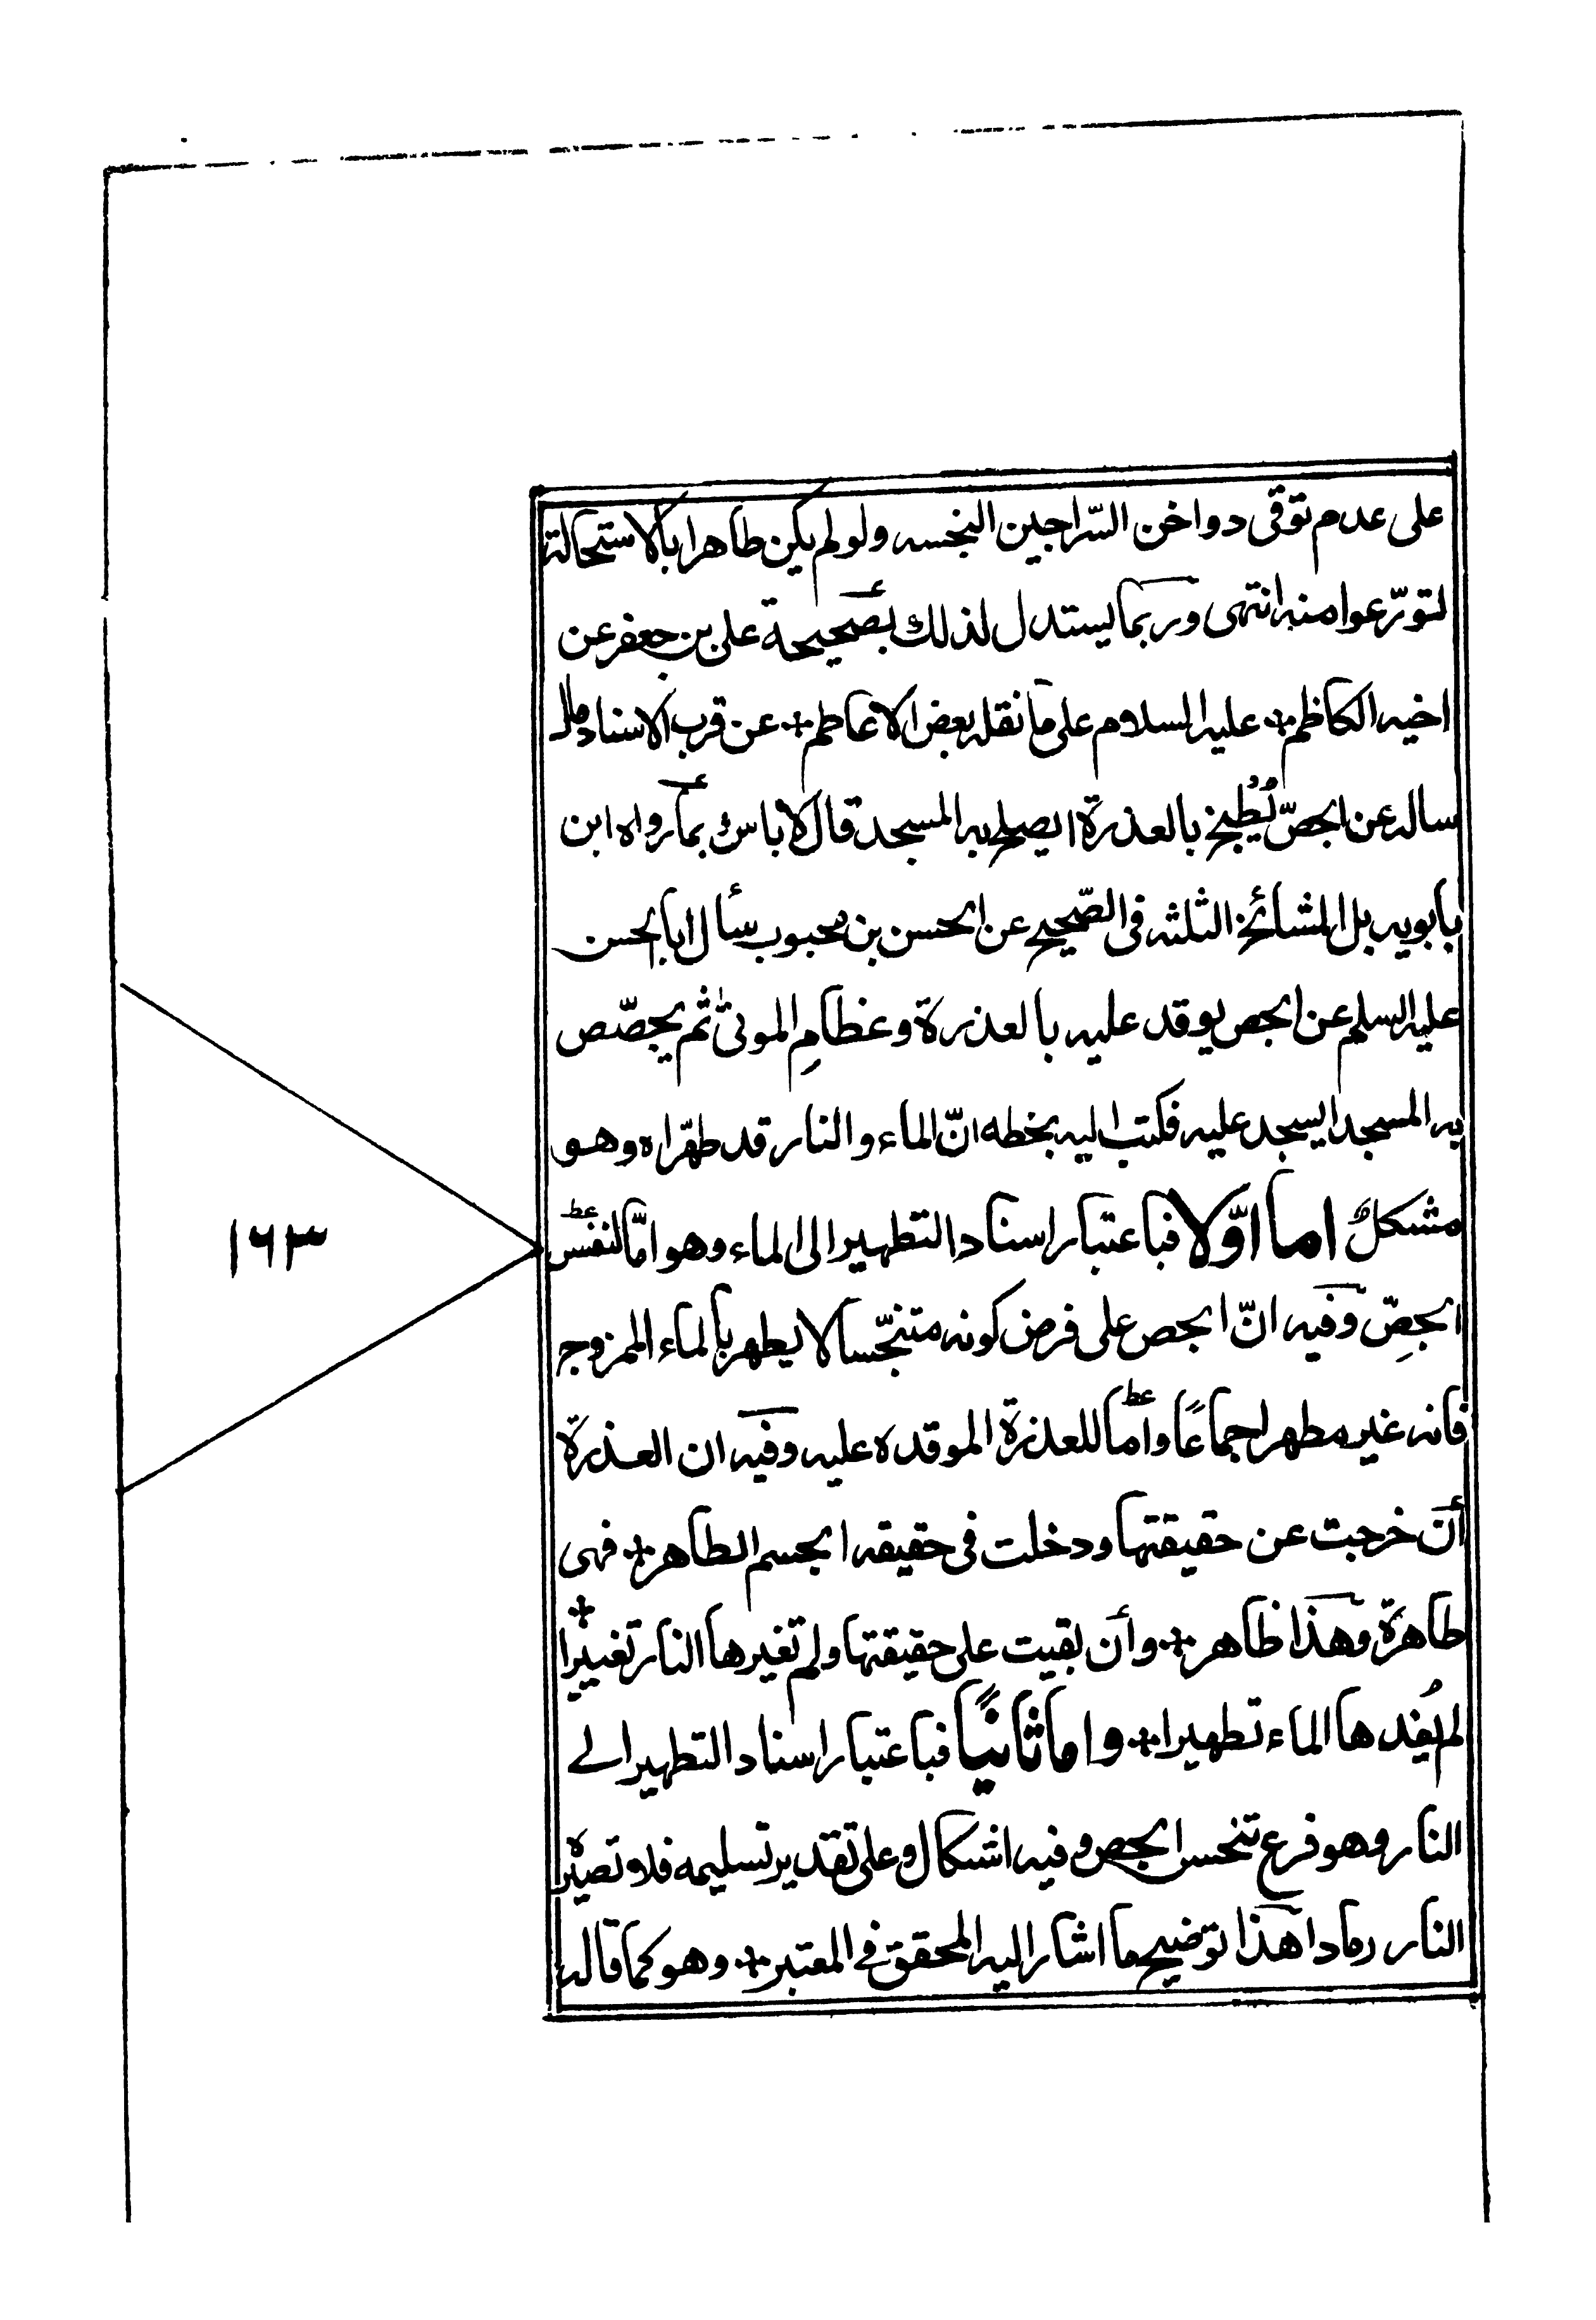 على عدم توقى دواخن السّراجين النجسه ولو لم يكن طاهرا بالاستحالة
لتورّعوا منه انتهى وربما يستدل لذلك بصحيحة على بن جعفر عن
اخيه الكاظم عليه السلام على ما نقله بعض الاعاظم عن قرب الاسناد
ساله عن الجصّ يُطبخ بالعذرة ايصلح به المسجد قال لا باس بما رواه ابن
بابويه بل المشائخ الثلثه فى الصّحيح عن الحسن بن محبوب سأل ابا الحسن
عليه السلم عن الجص يوقد عليه بالعذرة وعظامِ الموتىٰ ثم يجصّص
به المسجد ايسجد عليه فكتب اليه بخطه انّ الماء والنار قد طهّراه وهو
مشكلٌ اما اوّلا فباعتبار اسناد التطهير الى الماء وهو امّا لنفس
الجصِّ وفيه انّ الجص على فرض كونه متنجّسا لا يطهر بالماء الممزوج
فانه غير مطهر اجماعًا واما للعذرة الموقده عليه وفيه ان العذرة
أن خرجت عن حقيقتها ودخلت فى حقيقه الجسم الطاهر فهى
طاهرة وهذا ظاهر وأن بقيت على حقيقتها ولم تغيرها النار تغييرا
لم يُفدها الماء تطهيرا واما ثانيًا فباعتبار اسناد التطهير الے
النار وهو فرع تنجس الجص وفيه اشكال وعلى تقدير تسليمه فلا تصيره
النار رمادا هذا توضيح ما اشار اليه المحقق فے المعتبر وهو كما قاله
١٦٣